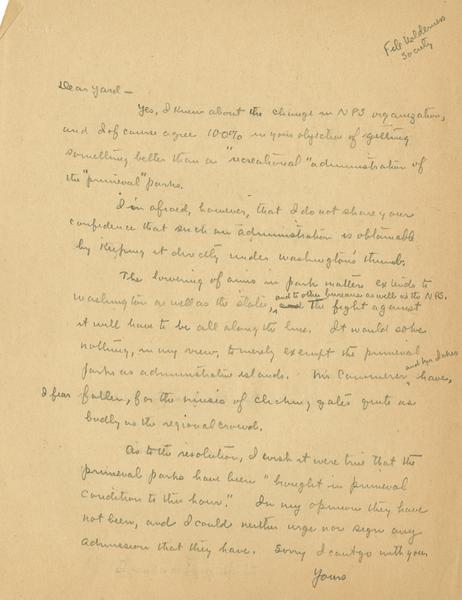 File Wilderness
Society
Dear Yard –
Yes, I knew about the change in NPS organization,
and I of course agree 100% in your objection of getting
something better than a "recreational" administration of
the "primeval" parks.
I'm afraid, however, that I do not share your
confidence that such an administration is obtainable
by keeping it directly under Washington's thumb.
The lowering of aims in park matters extends to
Washington as well as the states, and to other bureaus as well as the NPS.
and The fight against
it will have to be all along the line. It would solve
nothing, in my view, to merely exempt the primeval
parks as administrative islands. Mr. Cammerer and Mr. Ickes have,
I fear fallen, for the of clicking gates quite as
badly as the regional crowd.
As to the resolution, I wish it were true that the
primeval parks have been "brought in primeval
condition to this hour." In my opinion they have
not been, and I could neither urge nor sign any
admission that they have. Sorry I can't go with you.
Yours